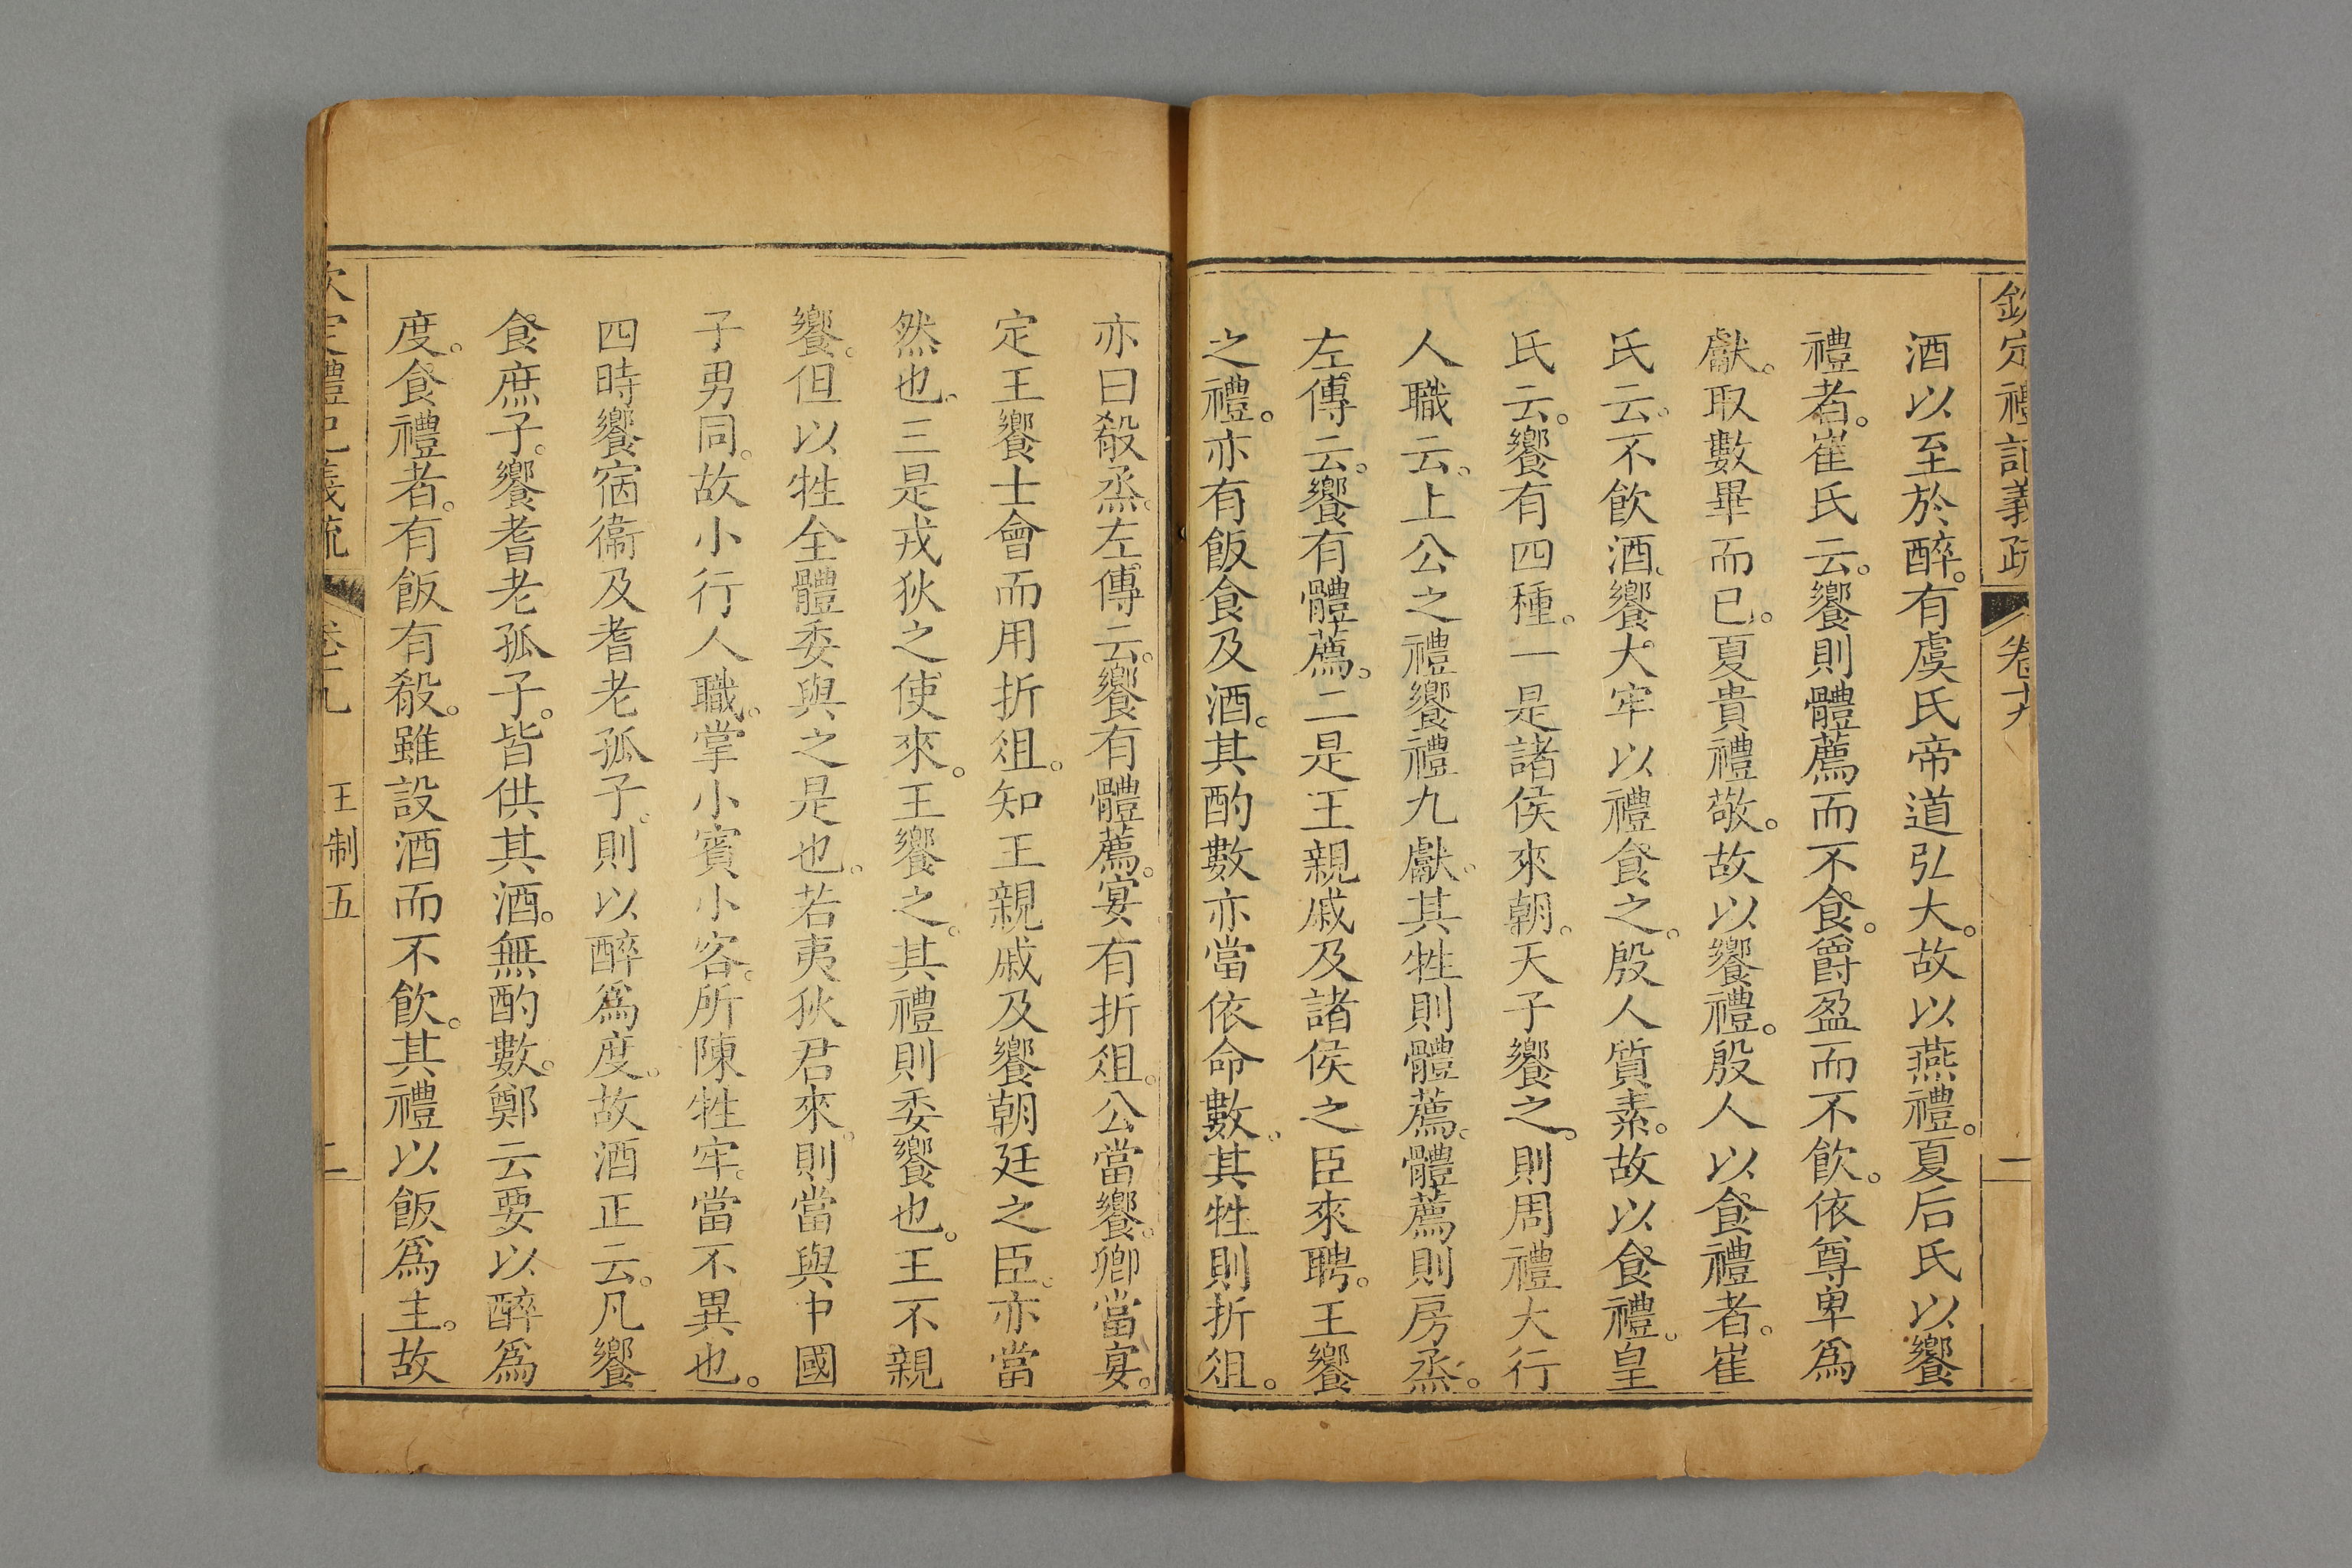 欽定禮記義疏 卷十九 二
酒以至於醉。有虞氏帝道弘大。故以燕禮。夏后氏以饗
禮者。崔氏云。饗則體薦而不食。爵盈而不飲。依尊卑爲
獻。取數畢而已。夏貴禮敬。故以饗禮。殷人以食禮者。崔
氏云。不飲酒。饗大牢以禮食之。殷人質素。故以食禮。皇
氏云。饗有四種。一是諸侯來朝。天子饗之。則周禮大行
人職云。上公之禮饗禮九獻。其牲則體薦。體薦則房烝。
左傳云。饗有體薦。二是王親戚及諸侯之臣來聘。王饗
之禮。亦有飯食及酒。其酌數亦當依命數。其牲則折俎。
亦曰殽烝。左傳云。饗有體薦。宴有折俎。公當饗。卿當宴。
定王饗士會而用折俎。知王親戚及饗朝廷之臣。亦當
然也。三是戎狄之使來。王饗之。其禮則委饗也。王不親
饗。但以牲全體委與之是也。若夷狄君來。則當與中國
子男同。故小行人職。掌小賓小客。所陳牲牢。當不異也。
四時饗宿衞及耆老孤子。則以醉爲度。故酒正云。凡饗
食庶子。饗耆老孤子。皆供其酒。無酌數。鄭云要以醉爲
度。食禮者。有飯有殽。雖設酒而不飲。其禮以飯爲主。故
欽定禮記義疏 卷十九 王制五 二